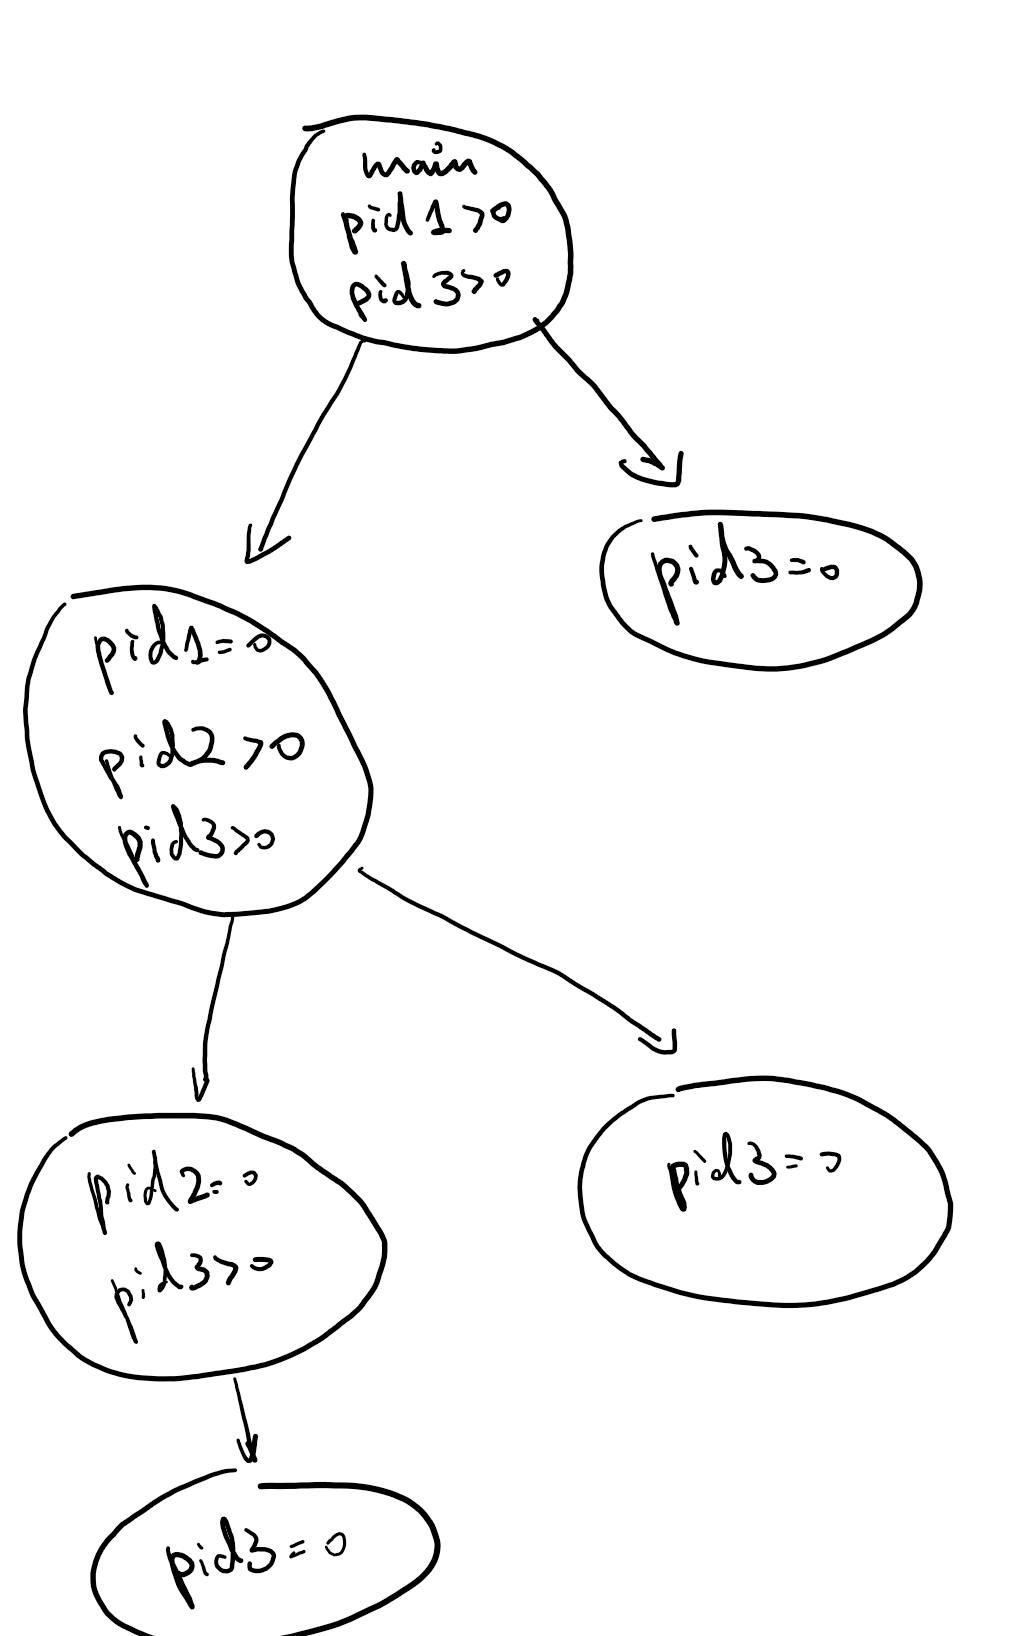 main
pid1>0
pid3>0
pid3=0
pid1=0
pid2>0
pid3>0
pid2=0
pid3>0
pid3=0
pid3=0